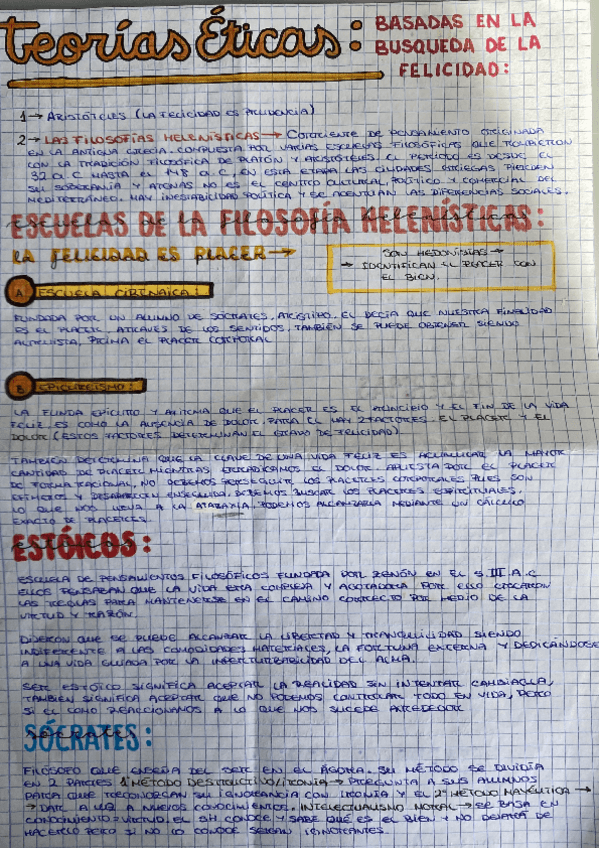 Teorías Éticas: BASADAS EN LA
BUSQUEDA DE LA
FELICIDAD:
1→ ARISTÓTELES (LA FELICIDAD ES PRUDENCIA)
2→ LAS FILOSOFÍAS HELENÍSTICAS → CORRIENTE DE PENSAMIENTO ORIGINADA
EN LA ANTIGUA GRECIA. COMPUESTA POR VARIAS ESCUELAS FILOSÓFICAS QUE ROMPIERON
CON LA TRADICIÓN FILOSÓFICA DE PLATÓN Y ARISTÓTELES. EL PERÍODO ES DESDE EL
32 a C HASTA EL 148 a.C, EN ESTA ETAPA LAS CIUDADES GRIEGAS PIERDEN
SU SOBERANÍA Y ATENAS NO ES EL CENTRO CULTURAL, POLÍTICO Y COMERCIAL DEL
MEDITERRÁNEO. HAY INESTABILIDAD POLÍTICA Y SE ACENTÚAN LAS DIFERENCIAS SOCIALES.
ESCUELAS DE LA FILOSOFÍA HELENÍSTICAS:
LA FELICIDAD ES PLACER →
SON HEDONISTAS →
→ IDENTIFICAN EL PLACER CON
EL BIEN.
A. ESCUELA CIRENAICA:
FUNDADA POR UN ALUMNO DE SÓCRATES, ARISTIPO. EL DECÍA QUE NUESTRA FINALIDAD
ES EL PLACER, ATRAVÉS DE LOS SENTIDOS. TAMBIÉN SE PUEDE OBTENER SIENDO
ALTRUISTA, PRIMA EL PLACER CORPORAL
B. EPICUREISMO:
LA FUNDA EPICURO Y AFIRMA QUE EL PLACER ES EL PRINCIPIO Y EL FIN DE LA VIDA
FELIZ. ES COMO LA AUSENCIA DE DOLOR. PARA EL HAY 2 FACTORES. EL PLACER Y EL
DOLOR (ESTOS FACTORES DETERMINAN EL ESTADO DE FELICIDAD)
TAMBIÉN DETERMINA QUE LA CLAVE DE UNA VIDA FELIZ ES ACUMULAR LA MAYOR
CANTIDAD DE PLACER MIENTRAS ERRADICAMOS EL DOLOR. APUESTA POR EL PLACER
DE FORMA RACIONAL, NO DEBEMOS PERSEGUIR LOS PLACERES CORPORALES PUES SON
EFÍMEROS Y DESAPARECEN ENSEGUIDA. DEBEMOS BUSCAR LOS PLACERES ESPIRITUALES.
LO QUE NOS LLEVA A LA ATARAXIA. PODEMOS ALCANZARLA MEDIANTE UN CÁLCULO
EXACTO DE PLACERES.
ESTÓICOS:
ESCUELA DE PENSAMIENTOS FILOSÓFICOS FUNDADA POR ZENÓN EN EL S. III A.C
ELLOS PENSABAN QUE LA VIDA ERA COMPLEJA Y AGOTADORA POR ELLO CREARON
LAS REGLAS PARA MANTENERSE EN EL CAMINO CORRECTO POR MEDIO DE LA
VIRTUD Y RAZÓN.
DIJERON QUE SE PUEDE ALCANZAR LA LIBERTAD Y TRANQUILIDAD SIENDO
INDIFERENTE A LAS COMODIDADES MATERIALES, LA FORTUNA EXTERNA Y DEDICÁNDOSE
A UNA VIDA GUIADA POR LA IMPERTURBABILIDAD DEL ALMA.
SER ESTÓICO SIGNIFICA ACEPTAR LA REALIDAD SIN INTENTAR CAMBIARLA,
TAMBIÉN SIGNIFICA ACEPTAR QUE NO PODEMOS CONTROLAR TODO EN VIDA, PERO
SI EL COMO REACCIONAMOS A LO QUE NOS SUCEDE ALREDEDOR
SÓCRATES:
FILÓSOFO QUE ENSEÑA DEL SER EN EL ÁGORA. SU MÉTODO SE DIVIDÍA
EN 2 PARTES 1º MÉTODO DESTRUCTIVO/IRONÍA → PREGUNTA A SUS ALUMNOS
PARA QUE RECONOZCAN SU IGNORANCIA CON IRONÍA Y EL 2º MÉTODO MAYÉUTICA →
→ DAR A LUZ A NUEVOS CONOCIMIENTOS. INTELECTUALISMO MORAL → SE BASA EN
CONOCIMIENTO = VIRTUD. EL SH CONOCE Y SABE QUE ES EL BIEN Y NO DEJARÁ DE
HACERLO PERO SI NO LO CONOCE SERÁN IGNORANTES.